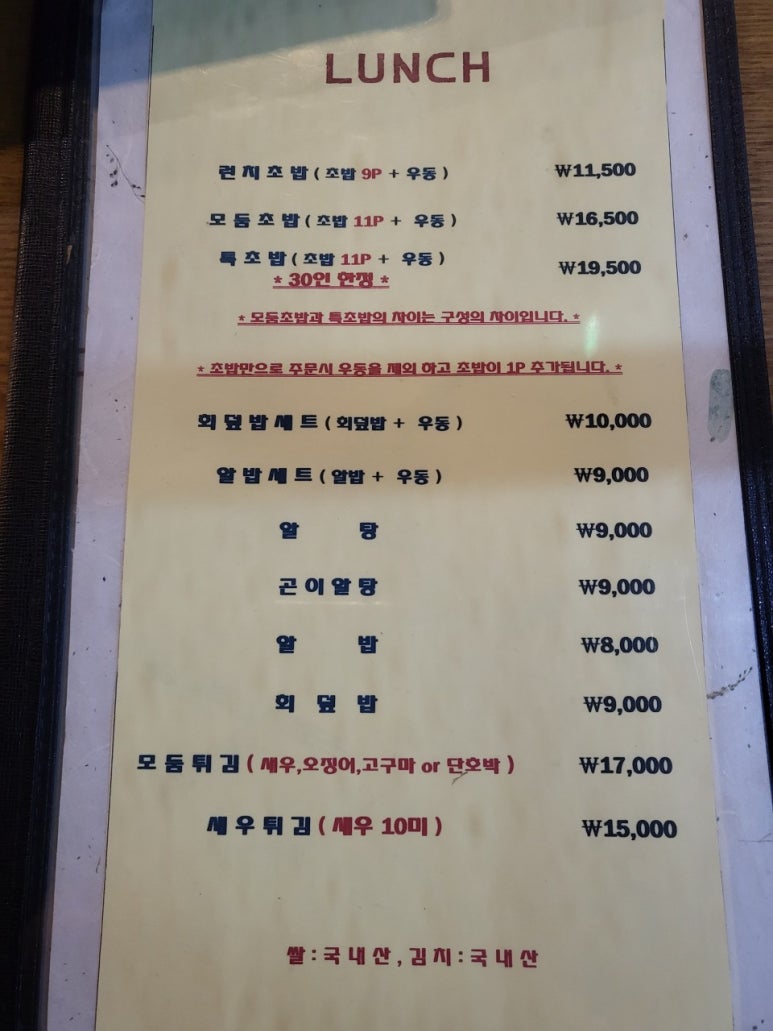 LUNCH
런치초밥 ( 초밥 9P + 우동 ) ₩11,500
모둠초밥 ( 초밥 11P + 우동 ) ₩16,500
특초밥 ( 초밥 11P + 우동 ) ₩19,500
* 30인 한정 *
* 모둠초밥과 특초밥의 차이는 구성의 차이입니다. *
* 초밥만으로 주문시 우동을 제외 하고 초밥이 1P 추가됩니다. *
회덮밥세트 ( 회덮밥 + 우동 ) ₩10,000
알밥세트 ( 알밥 + 우동 ) ₩9,000
알 탕 ₩9,000
곤이알탕 ₩9,000
알 밥 ₩8,000
회 덮 밥 ₩9,000
모둠튀김 ( 새우,오징어,고구마 or 단호박 ) ₩17,000
새우튀김 ( 새우 10미 ) ₩15,000
쌀 : 국내산 , 김치 : 국내산